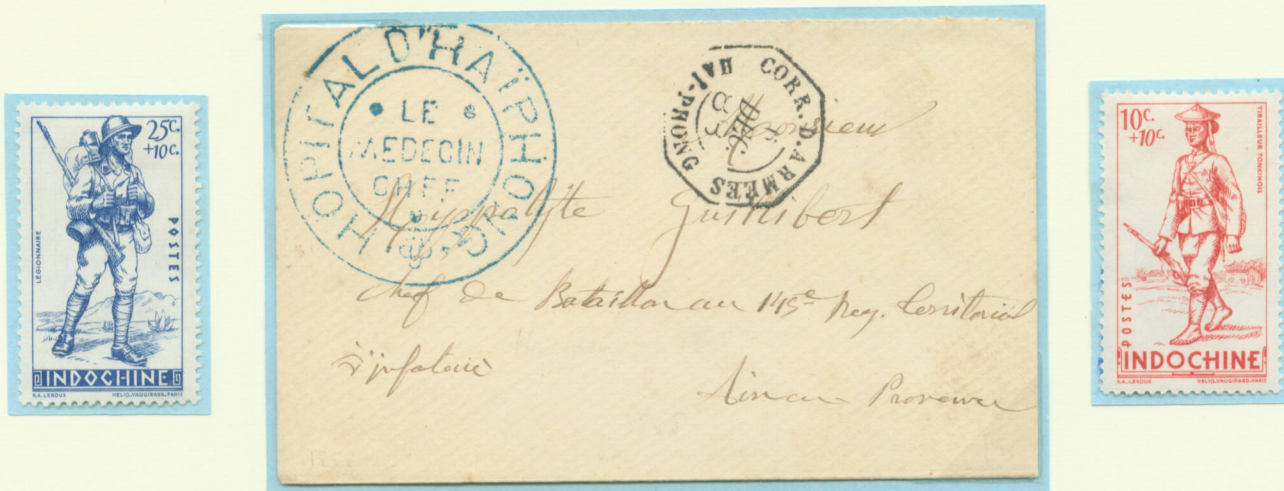 25c.
+10c.
LEGIONNAIRE
POSTES
INDOCHINE
R.A. LEROUX
HELIO. VAUGIRARD. PARIS
HOPITAL D'HAÏPHONG
LE
MEDECIN
CHEF
CORR. D. ARMEES
HAI-PHONG
Monsieur
Hyppolyte
Chef de Bataillon au 145e Reg. Territorial
d'infanterie
Aix en Provence
10c.
+10c.
TIRAILLEUR TONKINOIS
POSTES
INDOCHINE
R.A. LEROUX
HELIO. VAUGIRARD. PARIS